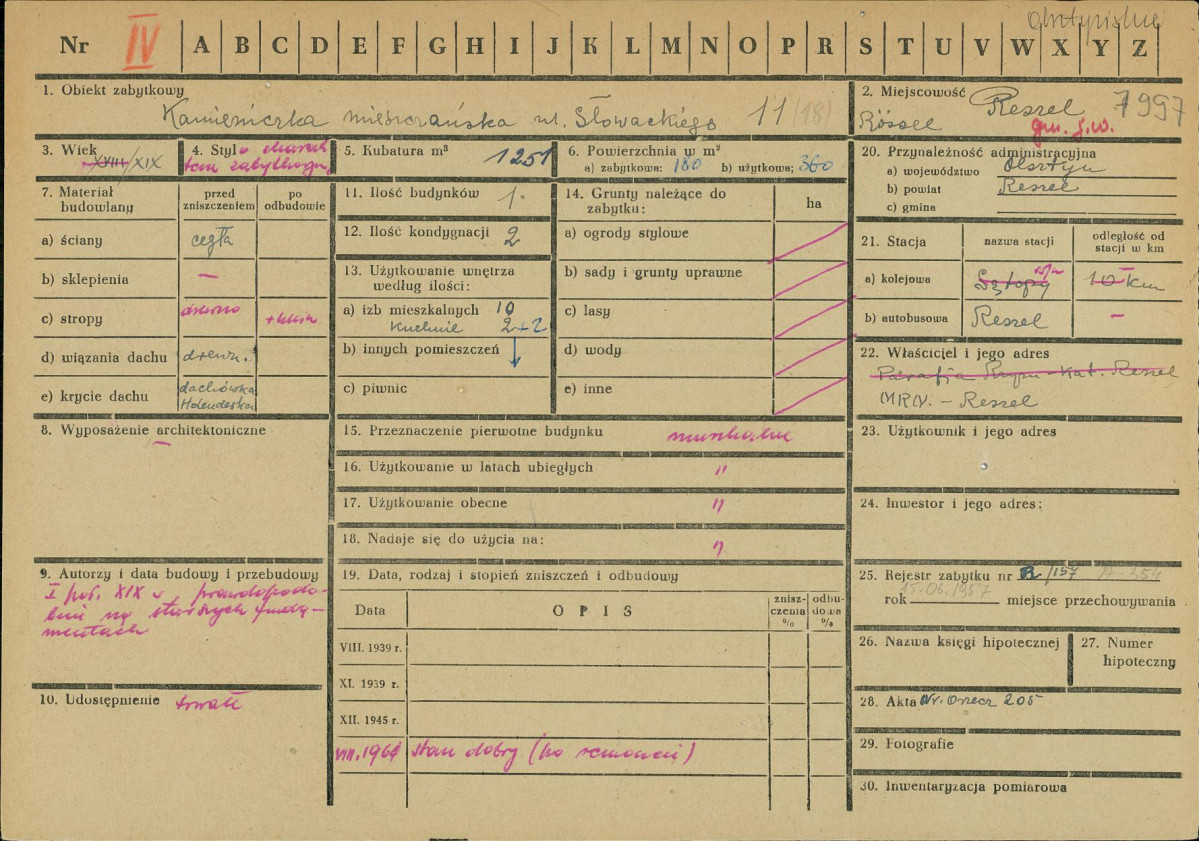 olsztyńskie
Nr IV A B C D E F G H I J K L M N O P R S T U V W X Y Z
1. Obiekt zabytkowy
Kamieniczka mieszczańska ul. Słowackiego 11 (18)
2. Miejscowość Reszel 7997
Rössel gm. j.w.
3. Wiek XVIII/XIX
4. Styl o charak
terze zabytkowym
5. Kubatura m³ 1251
6. Powierzchnia w m²
a) zabytkowa: 180 b) użytkowa: 360
7. Materiał budowlany
przed zniszczeniem
po odbudowie
a) ściany cegła
b) sklepienia —
c) stropy drewno
d) wiązania dachu drewn.
e) krycie dachu dachówka
Holenderska
8. Wyposażenie architektoniczne
—
9. Autorzy i data budowy i przebudowy
I poł. XIX w, prawdopodo-
bnie na starszych funda-
mentach
10. Udostępnienie trwałe
11. Ilość budynków 1.
12. Ilość kondygnacji 2
13. Użytkowanie wnętrza
według ilości:
a) izb mieszkalnych 10
Kuchnie 2+2
b) innych pomieszczeń
c) piwnic
14. Grunty należące do
zabytku:
ha
a) ogrody stylowe
b) sady i grunty uprawne
c) lasy
d) wody
e) inne
15. Przeznaczenie pierwotne budynku mieszkalne
16. Użytkowanie w latach ubiegłych "
17. Użytkowanie obecne "
18. Nadaje się do użycia na: "
19. Data, rodzaj i stopień zniszczeń i odbudowy
Data
OPIS
znisz-
czenia
%
odbu-
dowa
%
VIII. 1939 r.
XI. 1939 r.
XII. 1945 r.
VIII. 1961 stan dobry (po remoncie)
20. Przynależność administracyjna
a) województwo Olsztyn
b) powiat Reszel
c) gmina
21. Stacja
nazwa stacji
odległość od
stacji w km
a) kolejowa Sątopy 10 km
b) autobusowa Reszel —
22. Właściciel i jego adres
Parafia Rzym-Kat. Reszel
MRN. - Reszel
23. Użytkownik i jego adres
24. Inwestor i jego adres:
25. Rejestr zabytku nr R/157 A-254
15.06.1957
rok miejsce przechowywania
26. Nazwa księgi hipotecznej
27. Numer
hipoteczny
28. Akta Nr. Orzecz 205
29. Fotografie
30. Inwentaryzacja pomiarowa